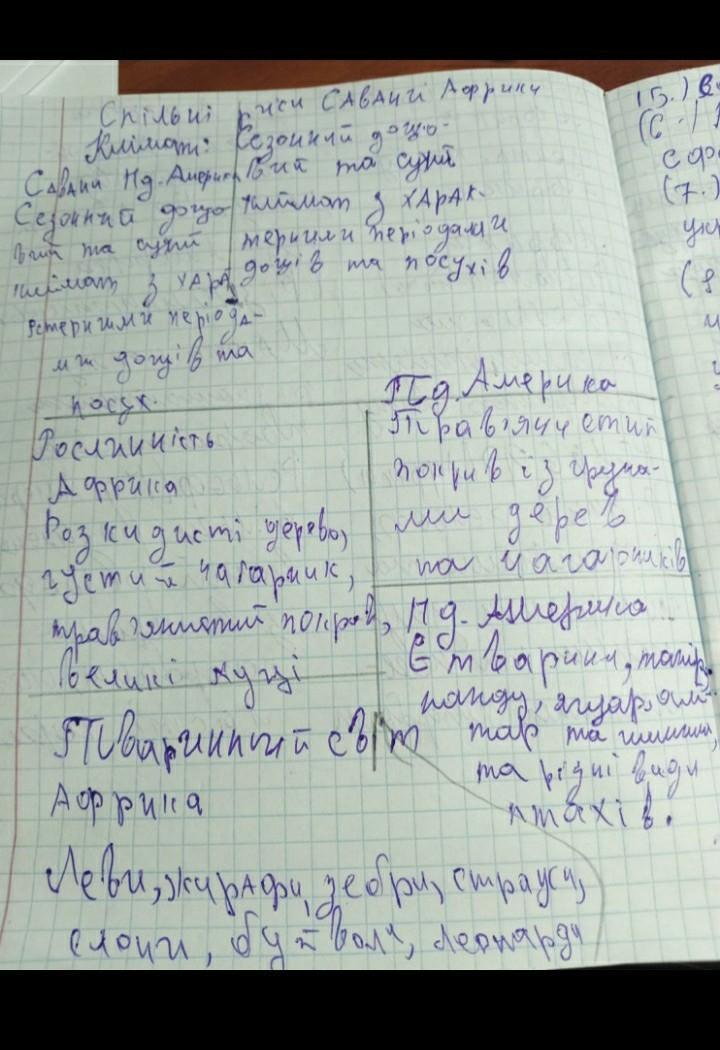 Спільні риси Савани Африки
Клімат: Сезонний дощо-
Савани Пд. Америки вий та сухий
Сезонний дощо клімат з харак-
вий та сухий терними періодами
клімат з хара дощів та посухів
ктерними періода-
ми дощів та
посух.
Рослинність
Африка
Розкидисті дерево,
густий чагарник,
трав'янистий покрив,
великі кущі
Пд. Америка
Трав'янистий
покрив із група-
ми дерев
та чагарників
Пд. Америка
Є тварини, тапір,
нанду, ягуар,
та
та різні види
птахів.
Тваринний світ
Африка
Леви, жирафи, зебри, страуси,
слони, буйволи, леопарди
15.)
(6.)
(7.)